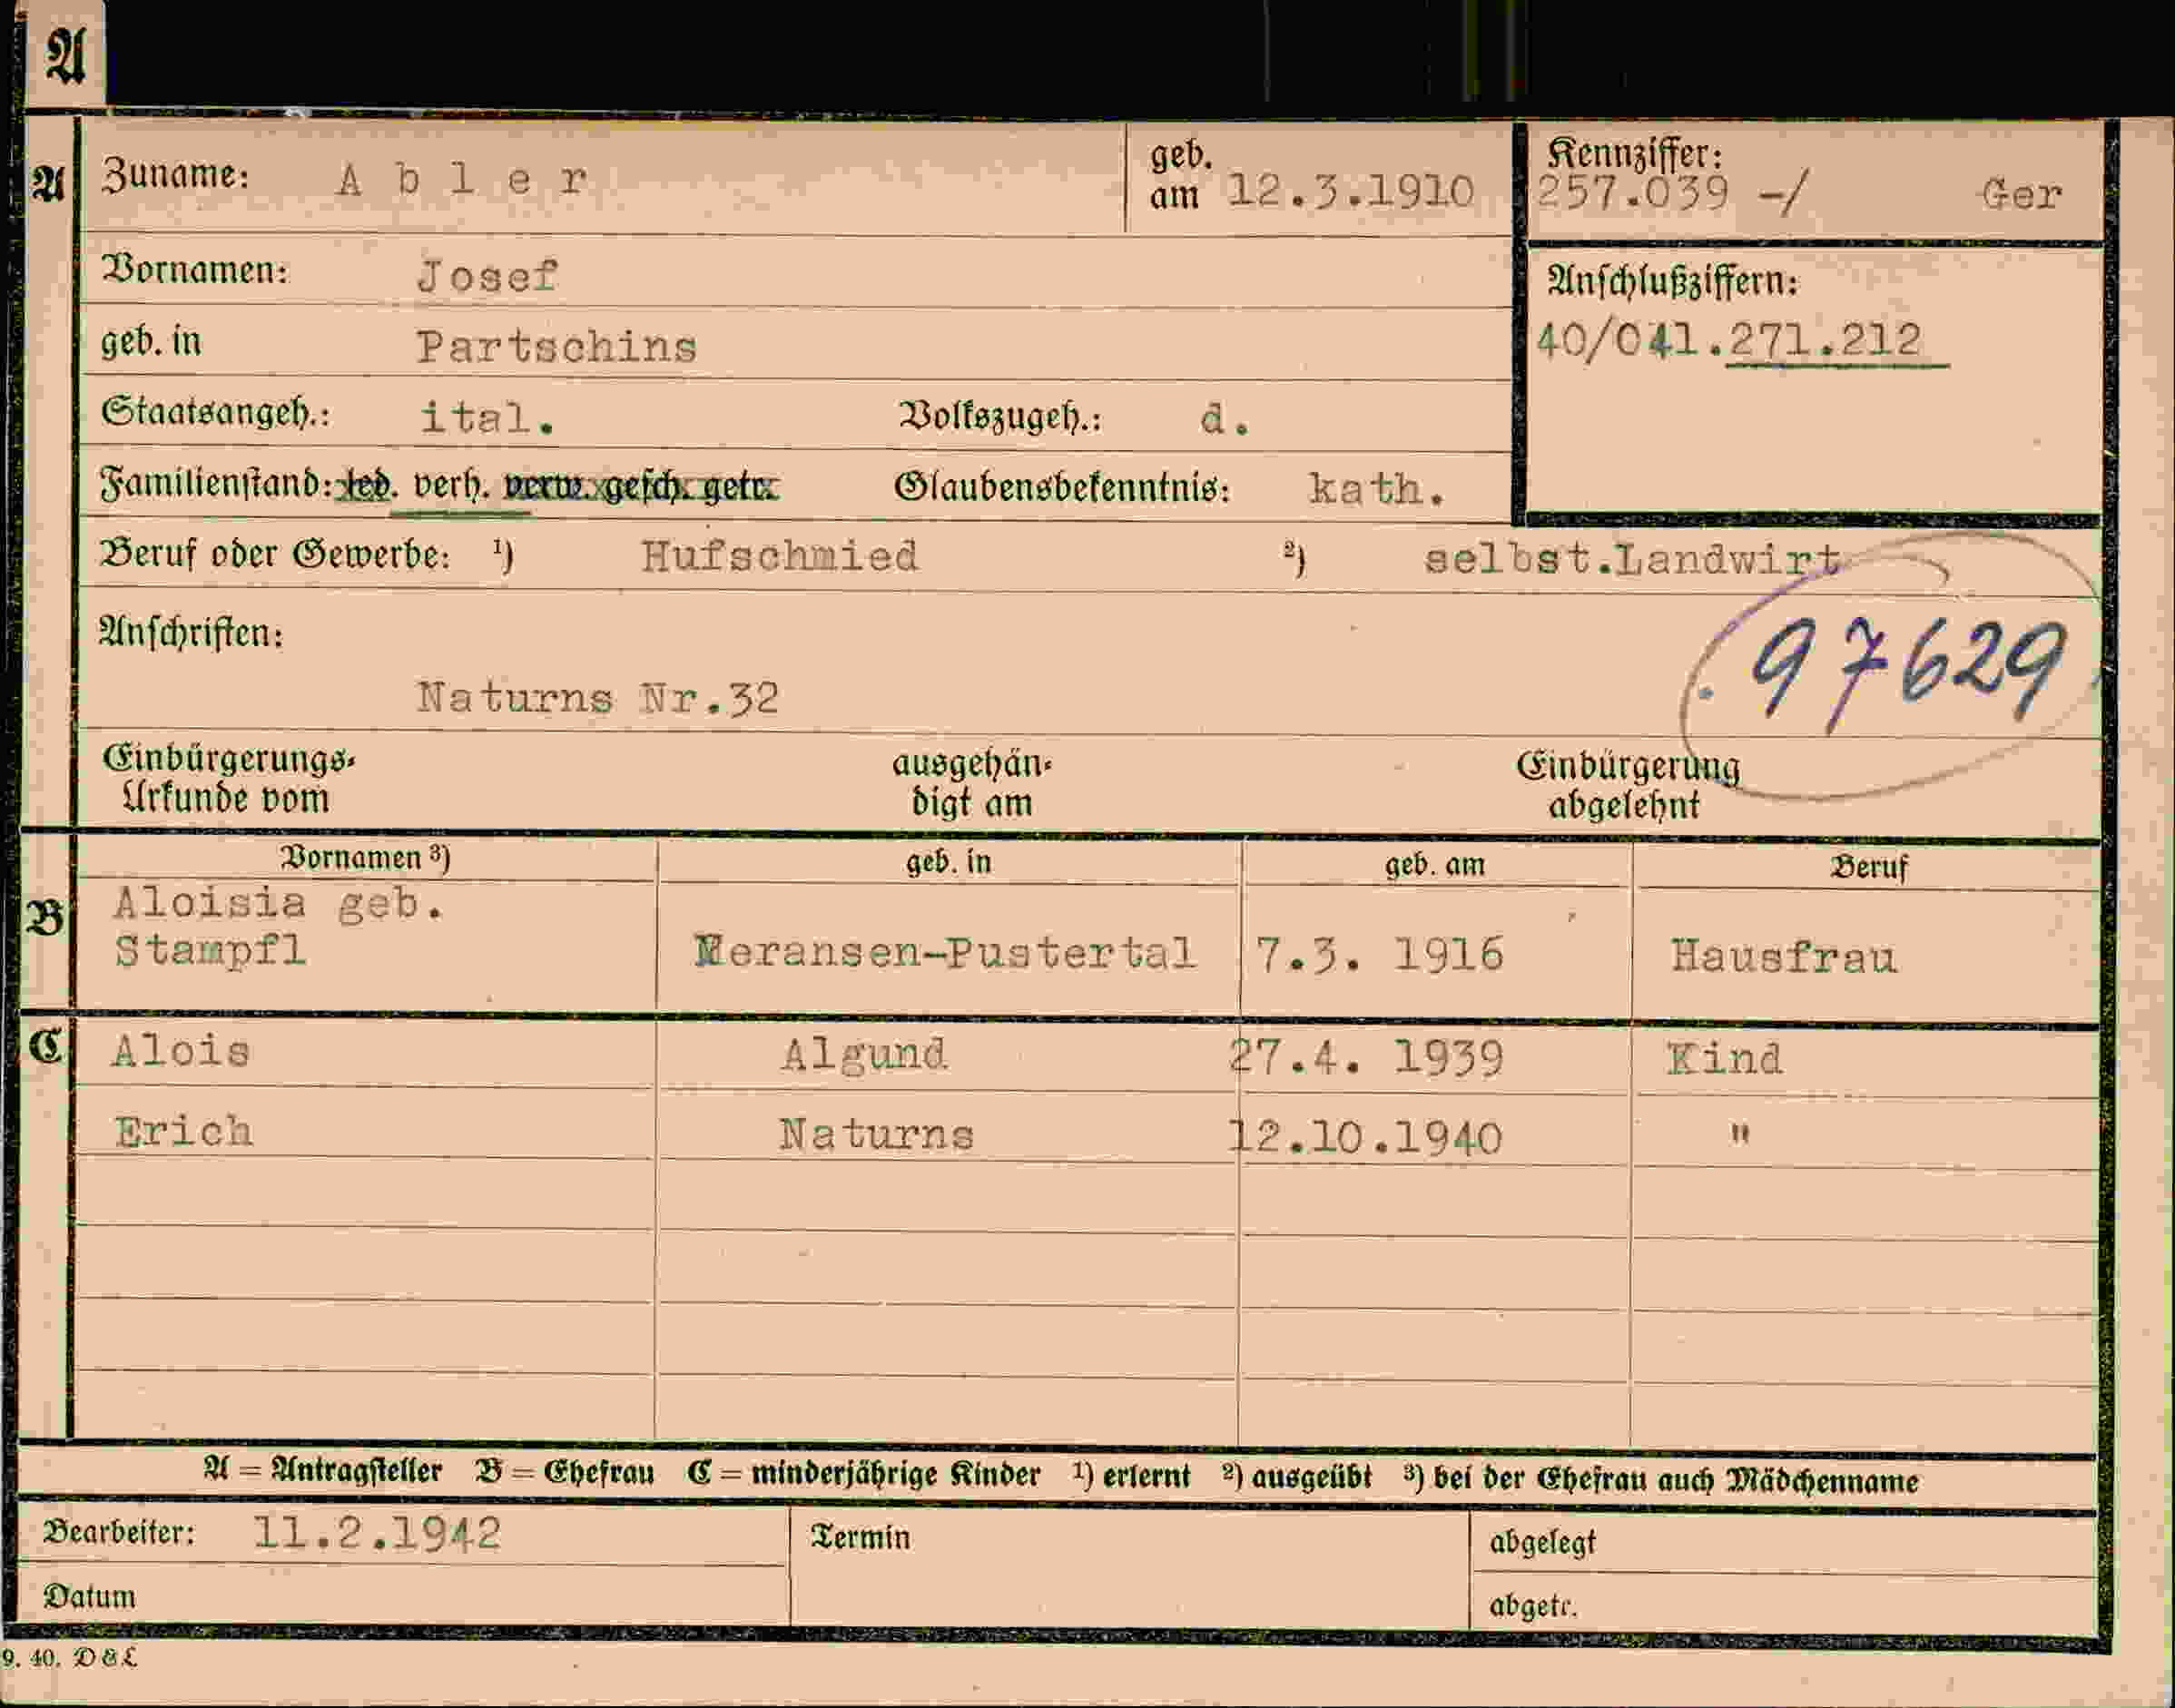 A
A Zuname: A b l e r geb. am 12.3.1910 Kennziffer: 257.039 -/ Ger
Vornamen: Josef Anschlußziffern:
geb. in Partschins 40/041.271.212
Staatsangeh.: ital. Volkszugeh.: d.
Familienstand: led. verh. verw. gesch. getr. Glaubensbekenntnis: kath.
Beruf oder Gewerbe: ¹) Hufschmied ²) selbst.Landwirt
Anschriften:
97629
Naturns Nr.32
Einbürgerungs- ausgehän- Einbürgerung
Urkunde vom digt am abgelehnt
Vornamen ³) geb. in geb. am Beruf
B Aloisia geb.
Stampfl Meransen-Pustertal 7.3. 1916 Hausfrau
C Alois Algund 27.4. 1939 Kind
Erich Naturns 12.10.1940 "
A = Antragsteller B = Ehefrau C = minderjährige Kinder ¹) erlernt ²) ausgeübt ³) bei der Ehefrau auch Mädchenname
Bearbeiter: 11.2.1942 Termin abgelegt
Datum abgetr.
9. 40. D & L